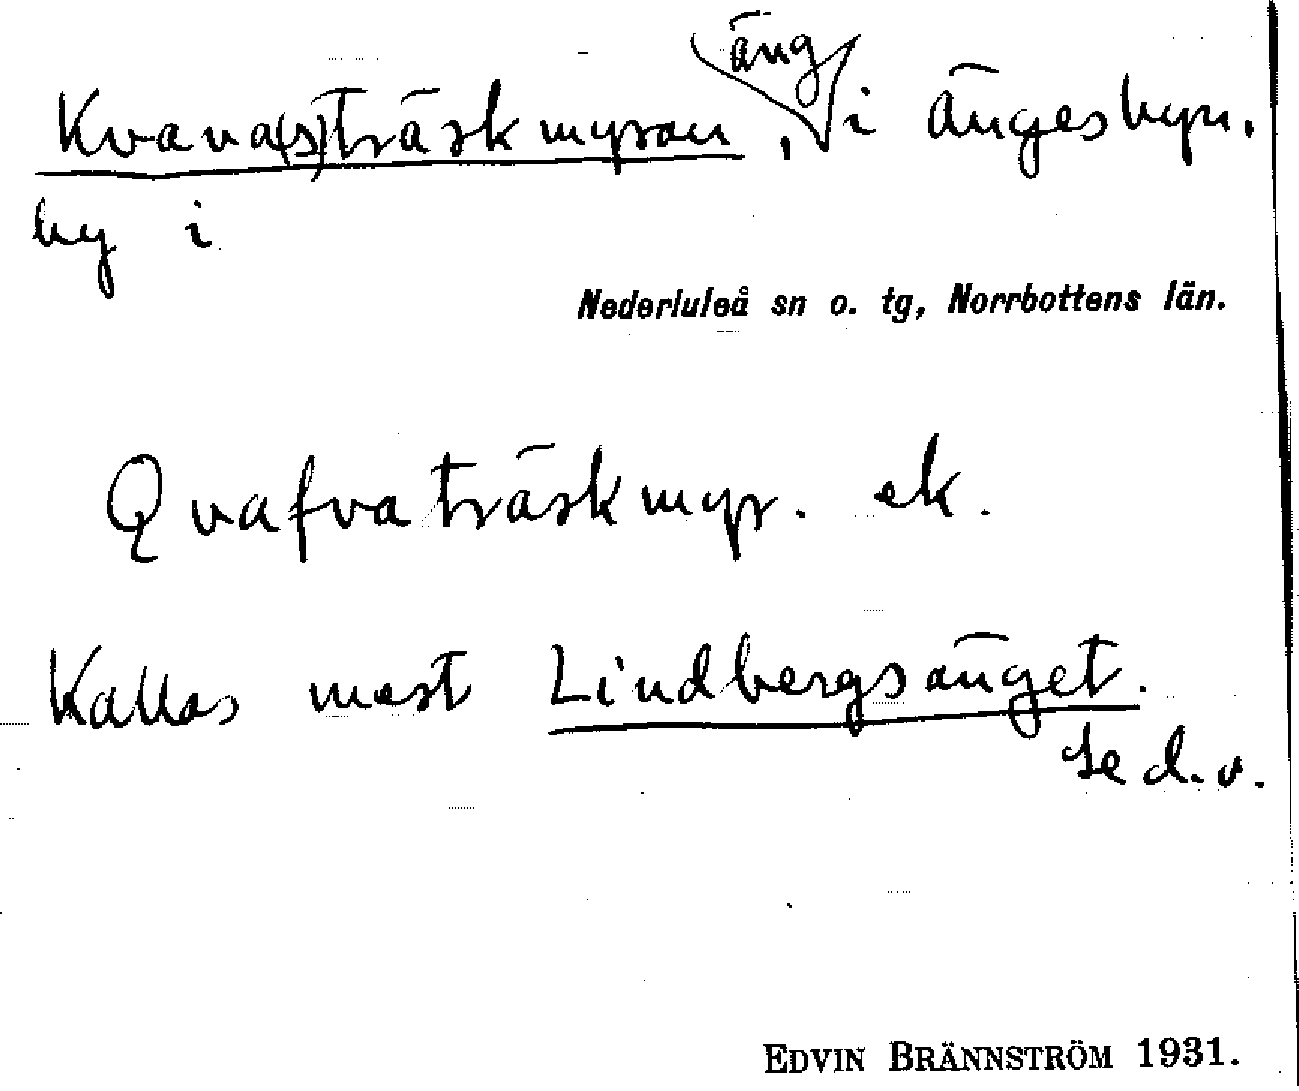 Kvava(s)träskmyran, äng i Ängesbyn,
by i
Nederluleå sn o. tg, Norrbottens län.
Qvafvaträskmyr. ek.
Kallas mest Lindbergsänget.
Se d.o.
EDVIN BRÄNNSTRÖM 1931.